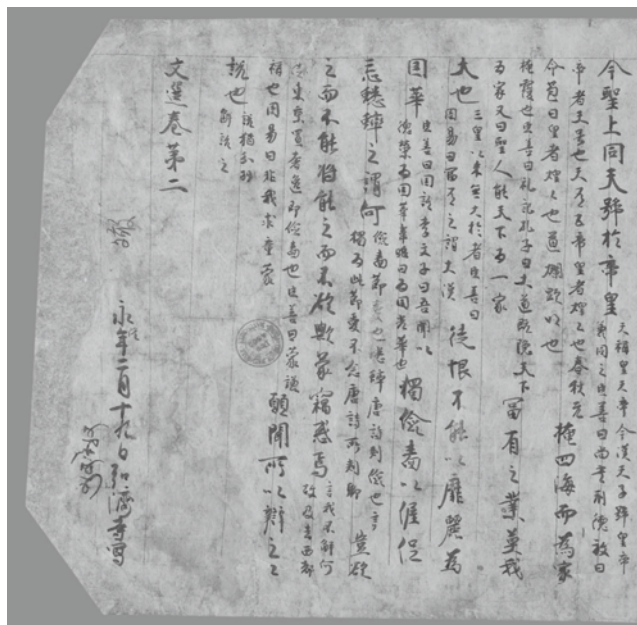 今聖上同天號於帝皇
天稱皇天帝今漢天子號皇帝
兼同之臣善曰尚書刑德放曰
帝者天号也天有五帝皇者煌々也春秋元
命苞曰皇者煌々也道爛顯明也
掩四海而為家
掩覆也臣善曰礼記孔子曰大道既隱天下
為家又曰聖人能天下為一家
富有之業莫我
大也
三皇以来無大於者臣善曰
周易曰富有之謂大業
徒恨不能以靡麗為
国華
臣善曰国語季文子曰吾聞以
德榮為国華韋昭曰為国光華也
獨儉嗇以偓促
忘蟋蟀之謂何
儉嗇節愛也蟋蟀唐詩刺儉也言
獨為此節愛不念唐詩所刺耶
豈欲
之而不能將能之而不欲歟蒙竊惑焉
言我不解何
故反去西都
從東京置奢逸即儉嗇也臣善曰蒙謙
稱也周易曰匪我求童蒙
願聞所以辯之之
說也
說猶分別
解說之
文選卷第二
永隆年二月十九日弘濟寺寫